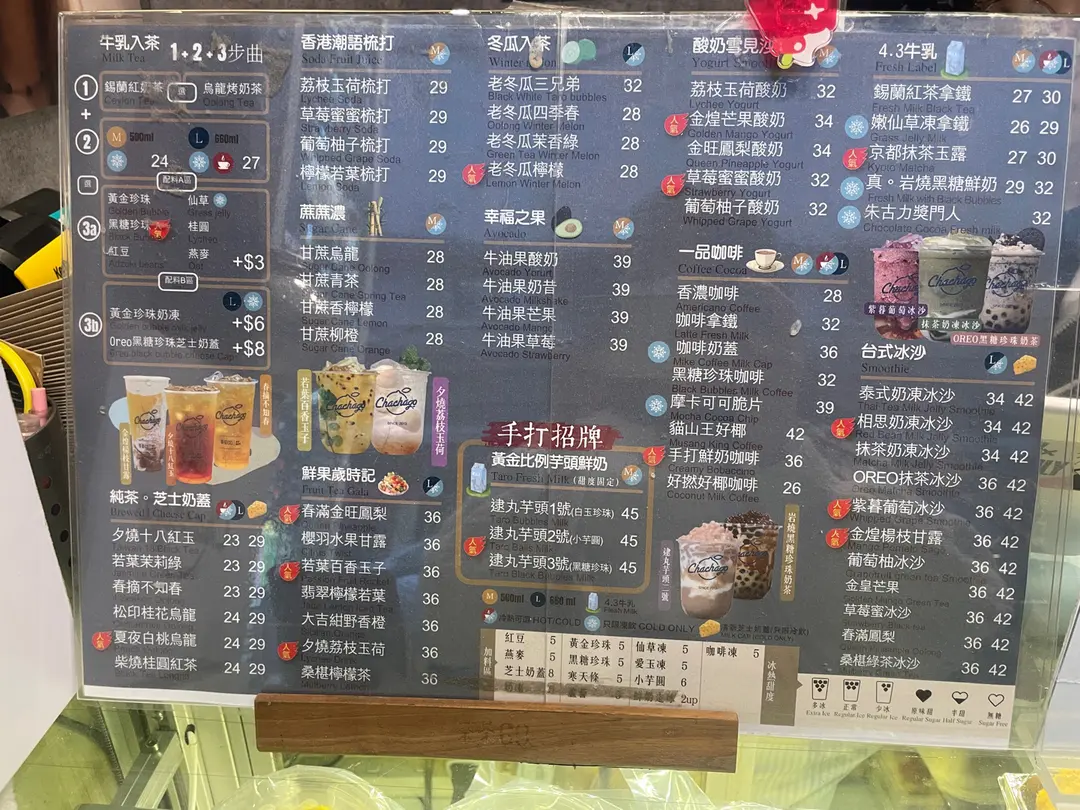 牛乳入茶 1+2+3步曲
Milk Tea
1
錫蘭紅奶茶 選 烏龍烤奶茶
Ceylon Tea Oolong Tea
+
2
M 500ml L 660ml
24 27
選
配料A區
3a
黃金珍珠 仙草
Golden Bubble Grass jelly
黑糖珍珠 桂圓
紅豆 燕麥
Oat
+$3
配料B區
3b
黃金珍珠奶凍 +$6
Oreo黑糖珍珠芝士奶蓋 +$8
春摘不知春
夕燒十八紅玉
純茶。芝士奶蓋
Brewed / Cheese Cap
夕燒十八紅玉 23 29
若葉茉莉綠 23 29
春摘不知春 23 29
松印桂花烏龍 24 29
人氣 夏夜白桃烏龍 24 29
柴燒桂圓紅茶 24 29
香港潮語梳打
Soda Fruit Juice
荔枝玉荷梳打 29
Lychee Soda
草莓蜜蜜梳打 29
Strawberry Soda
葡萄柚子梳打 29
Whipped Grape Soda
檸檬若葉梳打 29
Lemon Soda
蔗蔗濃
Sugar Cane
甘蔗烏龍 28
Sugar Cane Oolong
甘蔗青茶 28
Sugar Cane Spring Tea
甘蔗香檸檬 28
Sugar Cane Lemon
甘蔗柳橙 28
Sugar Cane Orange
若葉百香玉子
Chachago
Chachago
夕燒荔枝玉荷
鮮果歲時記
Fruit Tea Gala
人氣 春滿金旺鳳梨 36
櫻羽水果甘露 36
人氣 若葉百香玉子 36
翡翠檸檬若葉 36
大吉紺野香橙 36
人氣 夕燒荔枝玉荷 36
桑椹檸檬茶 36
冬瓜入茶
Winter Melon
老冬瓜三兄弟 32
Black White Taro bubbles
老冬瓜四季春 28
Oolong Winter Melon
老冬瓜茉香綠 28
Green Tea Winter Melon
人氣 老冬瓜檸檬 28
Lemon Winter Melon
幸福之果
Avocado
牛油果酸奶 39
Avocado Yogurt
牛油果奶昔 39
Avocado Milkshake
牛油果芒果 39
Avocado Mango
牛油果草莓 39
Avocado Strawberry
手打招牌
黃金比例芋頭鮮奶
Taro Fresh Milk (甜度固定)
逮丸芋頭1號(白玉珍珠) 45
人氣 逮丸芋頭2號(小芋圓) 45
Taro Balls Milk
逮丸芋頭3號(黑糖珍珠) 45
Taro Black Bubbles Milk
M 500 ml L 660 ml 4.3牛乳
Fresh Milk
冷熱可區HOT/COLD 只建議飲 COLD ONLY
加料區
紅豆 5 黃金珍珠 5 仙草凍 5 咖啡凍 5
燕麥 5 黑糖珍珠 5 愛玉凍 5
芝士奶蓋 8 寒天條 5 小芋圓 6
2up
冰熱甜度
酸奶雪見沙
荔枝玉荷酸奶 32
Lychee Yogurt
人氣 金煌芒果酸奶 34
Golden Mango Yogurt
金旺鳳梨酸奶 34
Queen Pineapple Yogurt
人氣 草莓蜜蜜酸奶 32
Strawberry Yogurt
葡萄柚子酸奶 32
Whipped Grape Yogurt
一品咖啡
Coffee Cocoa
香濃咖啡 28
Americano Coffee
咖啡拿鐵 32
Latte Fresh Milk
咖啡奶蓋 36
Mike Coffee Milk Cap
黑糖珍珠咖啡 32
Black Bubbles Milk Coffee
摩卡可可脆片 39
Mocha Cocoa Coffee
貓山王好椰 42
Musang King Coffee
人氣 手打鮮奶咖啡 36
Creamy Bobaccino
好撚好椰咖啡 26
Coconut Milk Coffee
逮丸芋頭一號
岩燒黑糖珍珠奶茶
4.3牛乳
Fresh Label
錫蘭紅茶拿鐵 27 30
Fresh Milk Black Tea
嫩仙草凍拿鐵 26 29
Grass Jelly Milk
人氣 京都抹茶玉露 27 30
Matcha Milk
真。岩燒黑糖鮮奶 29 32
Fresh Milk with Black Bubbles
朱古力獎門人 32
Chocolate Cocoa Fresh milk
紫暮葡萄冰沙
抹茶奶凍冰沙
OREO黑糖珍珠奶茶
台式冰沙
Smoothie
泰式奶凍冰沙 34 42
Thai Tea Milk Jelly Smoothie
人氣 相思奶凍冰沙 34 42
Red Bean Milk Jelly Smoothie
抹茶奶凍冰沙 34 42
Matcha Milk Jelly Smoothie
OREO抹茶冰沙 36 42
Oreo Matcha Smoothie
人氣 紫暮葡萄冰沙 36 42
Whipped Grape Smoothie
人氣 金煌楊枝甘露 36 42
葡萄柚冰沙 36 42
金皇芒果 36 42
草莓蜜冰沙 36 42
春滿鳳梨 36 42
桑椹綠茶冰沙 36 42
多冰 正常 少冰 原味甜 半甜 無糖
Extra Ice Regular Ice Regular Ice Regular Sugar Half Sugar Sugar Free